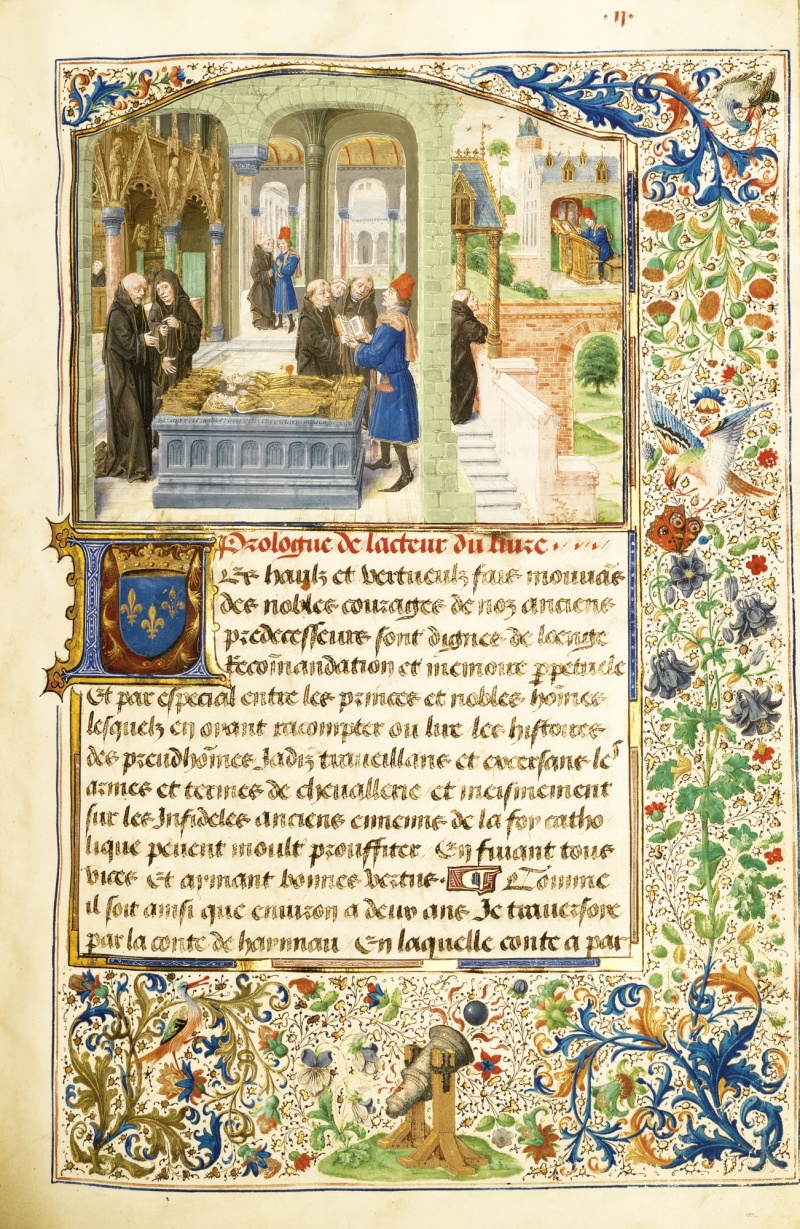 ·ij·
Prologue de lacteur du liure
Les haulz et vertueulz fais mouuās
des nobles courages de noz anciens
predecesseurs sont dignes de loenge
Recōmandation et memoire ꝑpetuele
Et par especial entre les princes et nobles hōmes
lesquelz en oyant racompter ou lire les histores
des preudhōmes Jadiz traueillans et excersans les
armes et termes de cheuallerie et meismement
sur les Infideles anciens ennemis de la foy catho
lique peuent moult prouffiter En fuiant tous
vices Et armant bonnes vertus · Comme
il soit ainsi que enuiron a deux ans Je trauersoie
par la conte de haynnau En laquelle conte a par